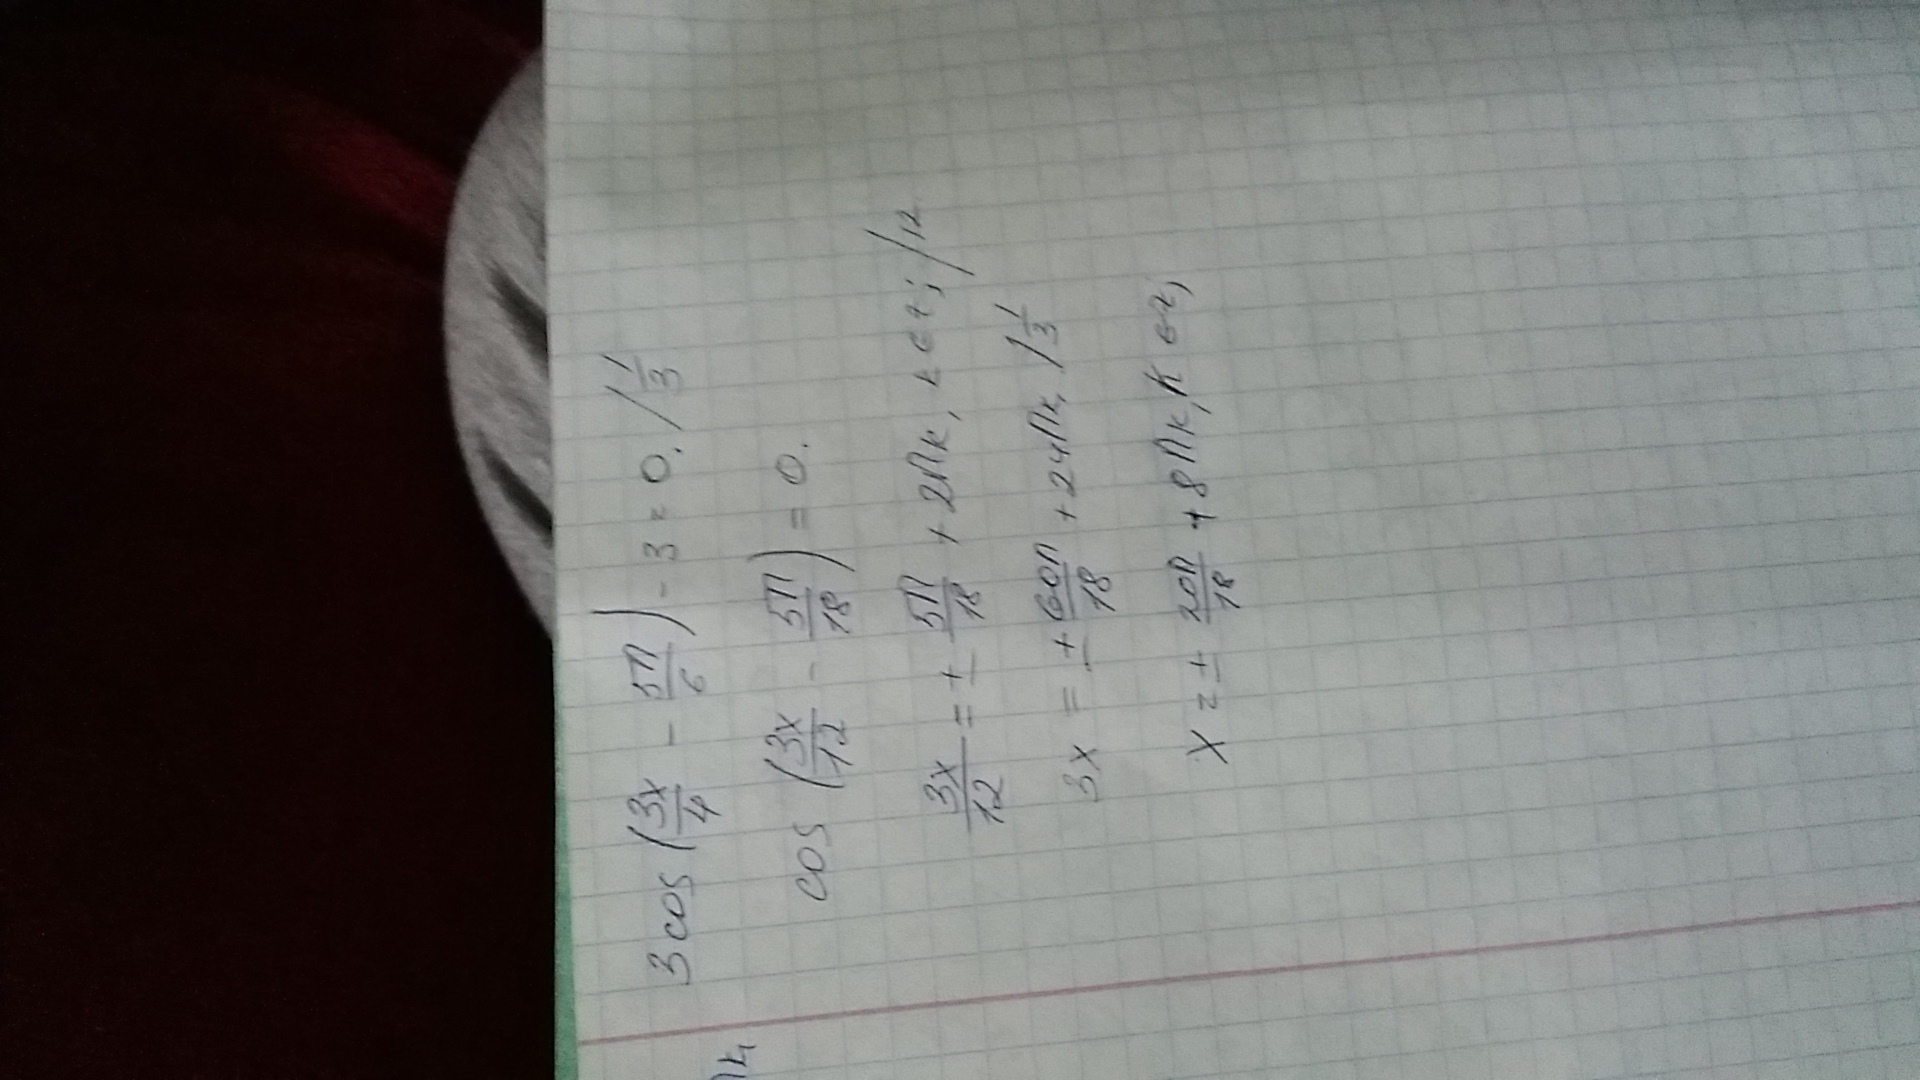 3cos(3x/4 - 5П/6) - 3 = 0. / 1/3
cos(3x/12 - 5П/18) = 0.
3x/12 = ± 5П/18 + 2Пk, k∈z; /12
3x = ± 60П/18 + 24Пk, / 1/3
x = ± 20П/18 + 8Пk, k∈z;